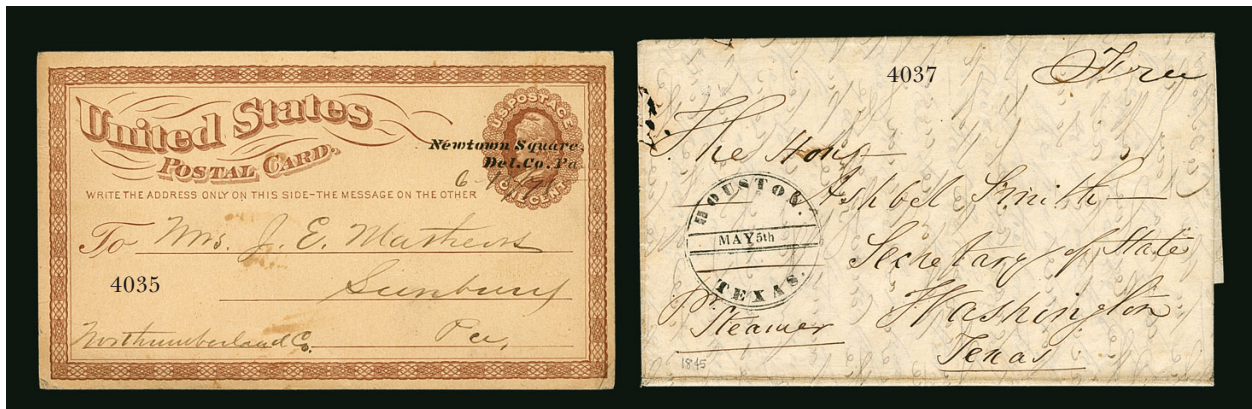 United States
POSTAL CARD.
U.S. POSTAGE
ONE CENT
Newtown Square,
Del. Co. Pa
WRITE THE ADDRESS ONLY ON THIS SIDE-THE MESSAGE ON THE OTHER
To Mrs. J. E. Mathews
4035
Sunbury
Northumberland Co. Pa.
4037
Free
The Hon
Ashbel Smith
HOUSTON.
MAY 5th
TEXAS.
Secretary of State
Washington
Pr Steamer
Texas
1845